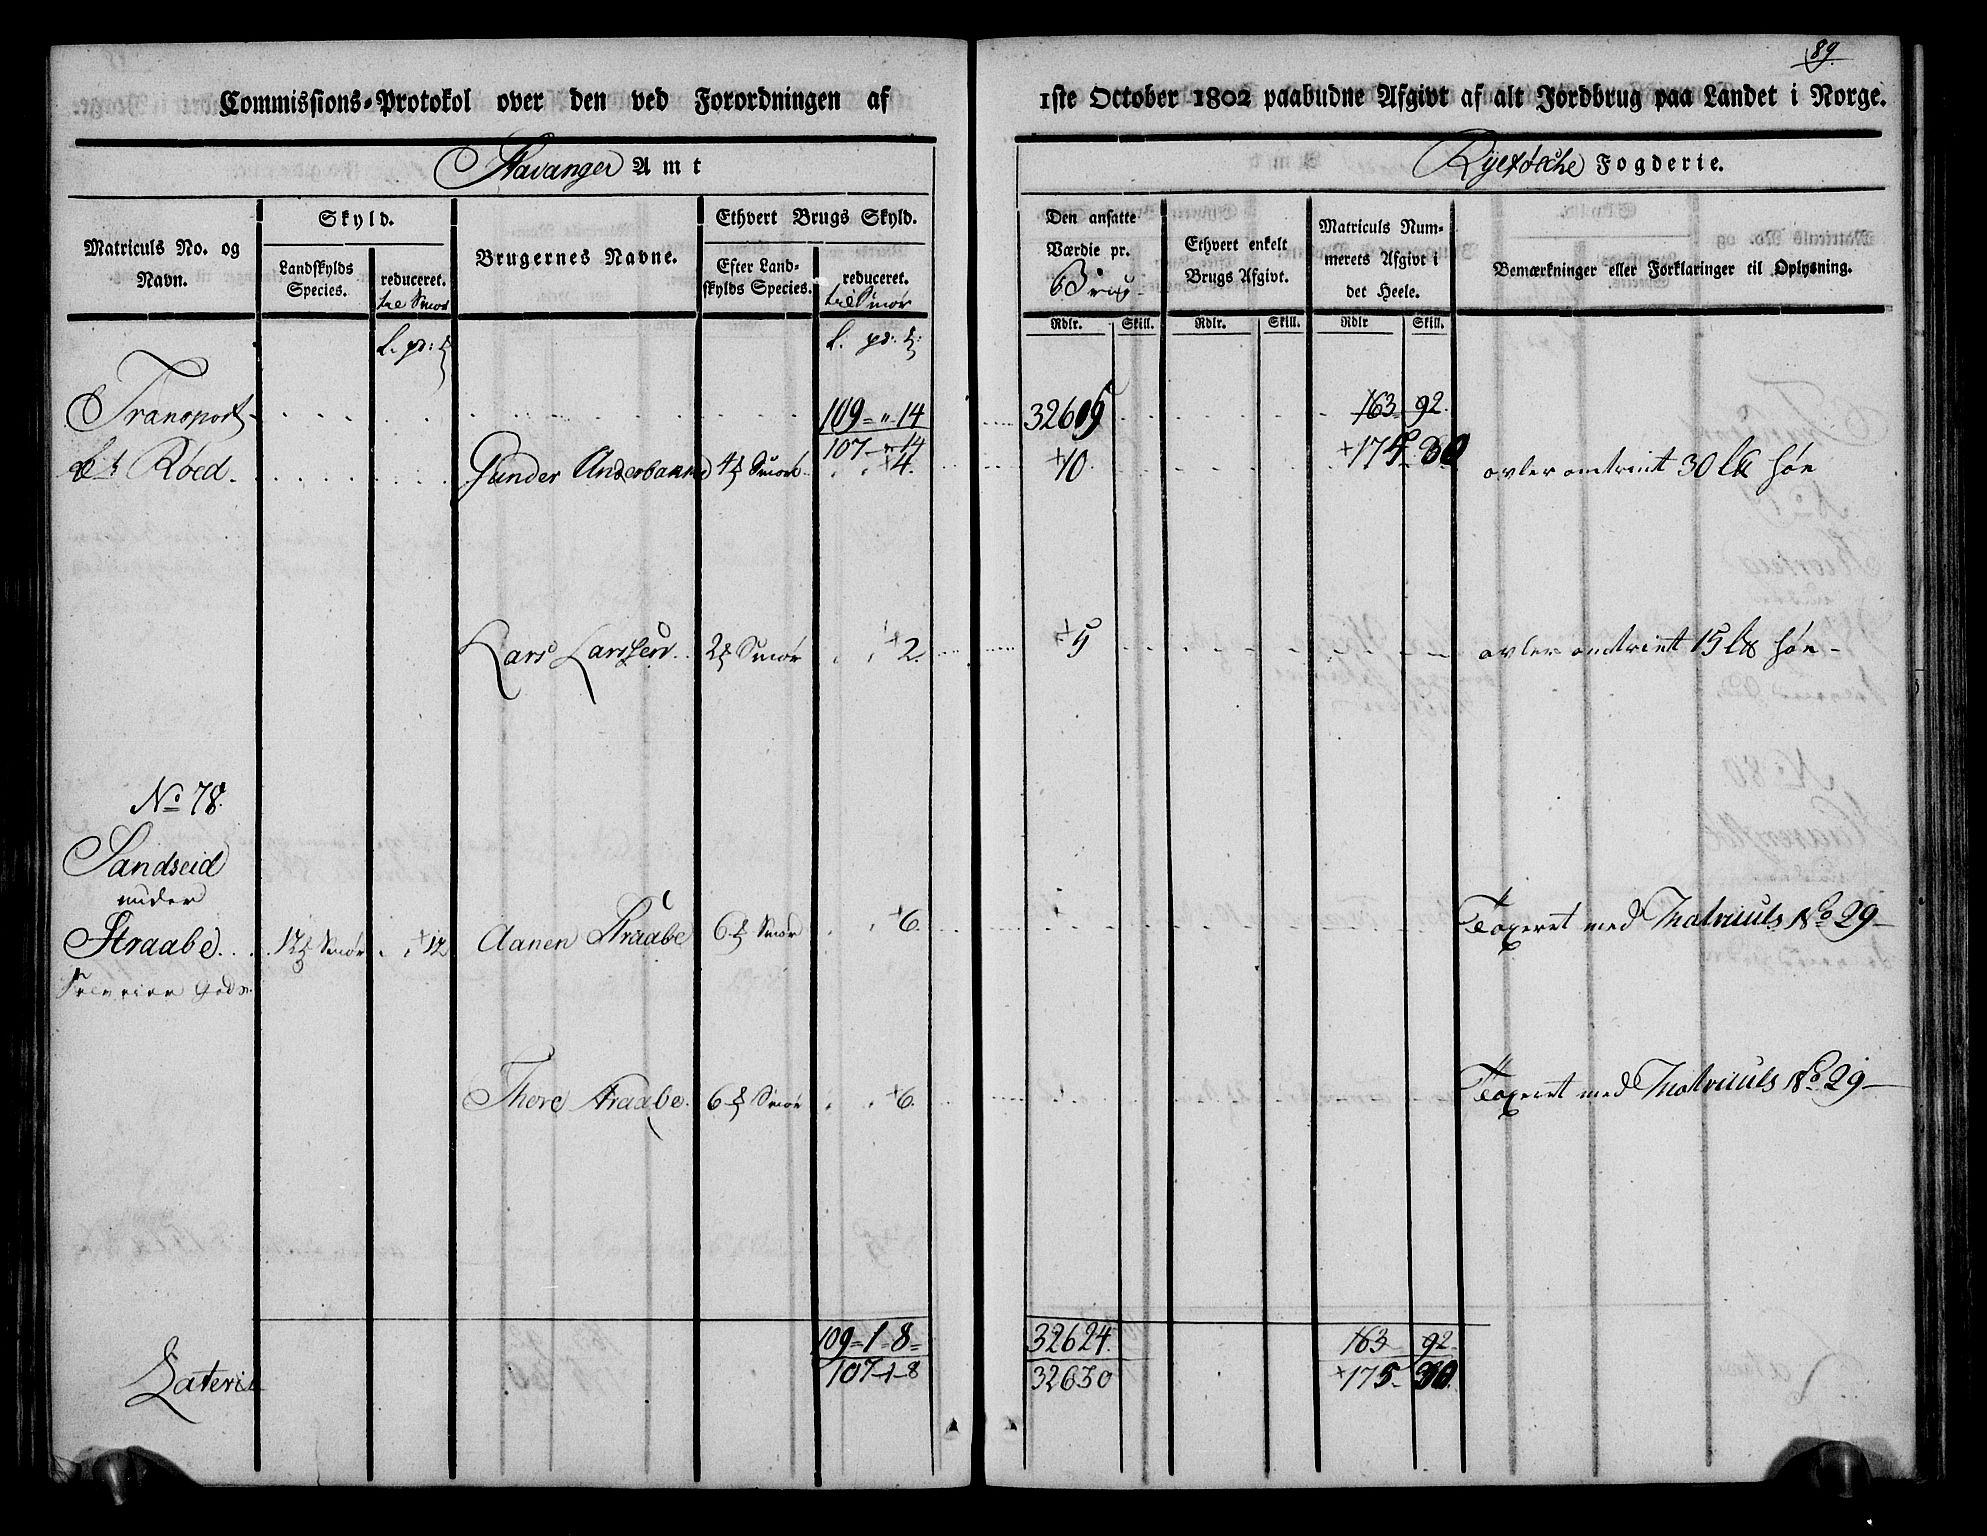 89.
Commissions-Protokol over den ved Forordningen af 1ste October 1802 paabudne Afgivt af alt Jordbrug paa Landet i Norge.
Stavanger Amt
Fogderie.
Matriculs No. og Navn.
Skyld.
Landskylds Species.
reduceret.
til Smør
Brugernes Navne.
Ethvert Brugs Skyld.
Efter Landskylds Species.
reduceret.
til Smør
Den ansatte Værdie pr.
Brug
Ethvert enkelt Brugs Afgivt.
Matriculs Nummerets Afgivt i det Heele.
Bemærkninger eller Forklaringer til Oplysning.
Rdlr. Skill. Rdlr. Skill. Rdlr Skill.
Transport 109 = " 14 163 92.
107 14 +175 30
Røed. Gunder 4 Smør +4. +10 avler omtrint 30 høe
Lars Larssen 2 Smør +2. +5 avler omtrint 15 høe
No 78.
Sandseid
under
Straabe 12 Smør +12 Aanen Straabe 6 Smør +6. Taxeret med Matriculs No 29
Gods
Thore Straabe. 6 Smør +6. Taxeret med Matriculs No 29
109 = 1 = 8 = 32624. 163 92
Lateris 107 - 1 - 8 32630 +175 30.